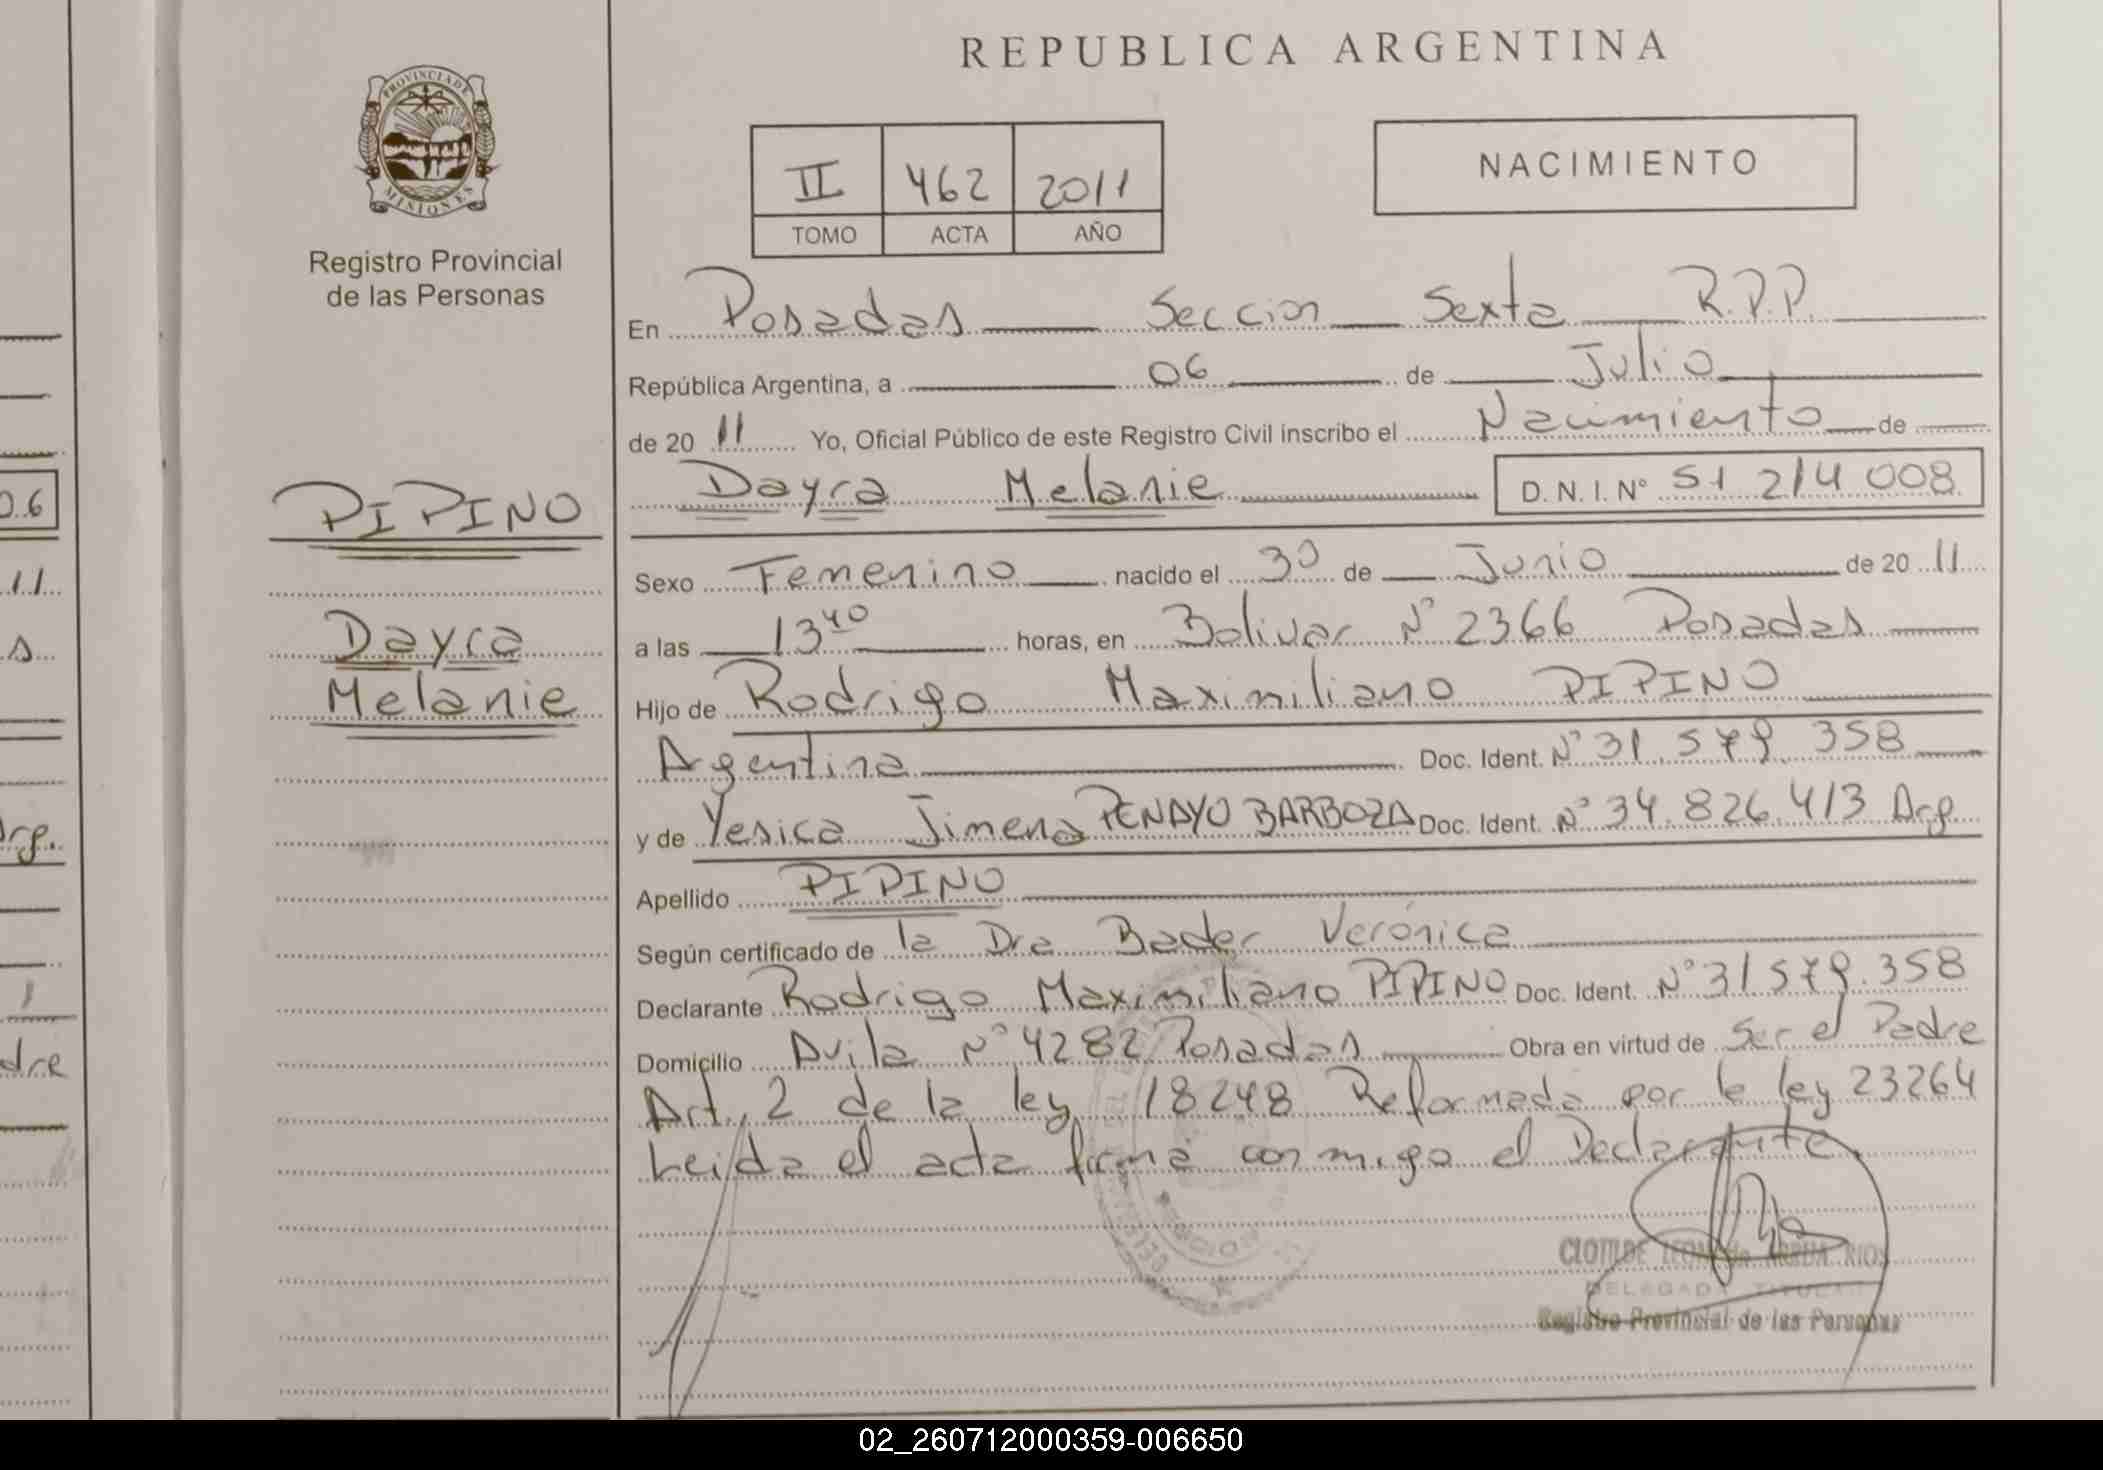 REPUBLICA ARGENTINA
PROVINCIA DE
MISIONES
Registro Provincial
de las Personas
II 462 2011
TOMO ACTA AÑO
NACIMIENTO
En Posadas Seccion Sexta R.P.P.
República Argentina, a 06 de Julio
de 20 11 Yo, Oficial Público de este Registro Civil inscribo el Nacimiento de
Dayra Melanie D. N. I. Nº 51 214 008
PIPINO
Dayra
Melanie
Sexo Femenino nacido el 30 de Junio de 20 11
a las 13 40 horas, en Bolivar Nº 2366 Posadas
Hijo de Rodrigo Maximiliano PIPINO
Argentina Doc. Ident. Nº 31.579.358
y de Yesica Jimena PENAYO BARBOZA Doc. Ident. Nº 34.826.413 Arg.
Apellido PIPINO
Según certificado de la Dra Bader Verónica
Declarante Rodrigo Maximiliano PIPINO Doc. Ident. Nº 31579.358
Domicilio Avila Nº 4282 Posadas Obra en virtud de Ser el Padre
Art. 2 de la ley 18248 Reformada por la ley 23264
Leida el acta firma conmigo el Declarante
CLOTILDE RIOS
DELEGADA TITULAR
Registro Provincial de las Personas
0.6
11
s
Arg.
dre
02_260712000359-006650